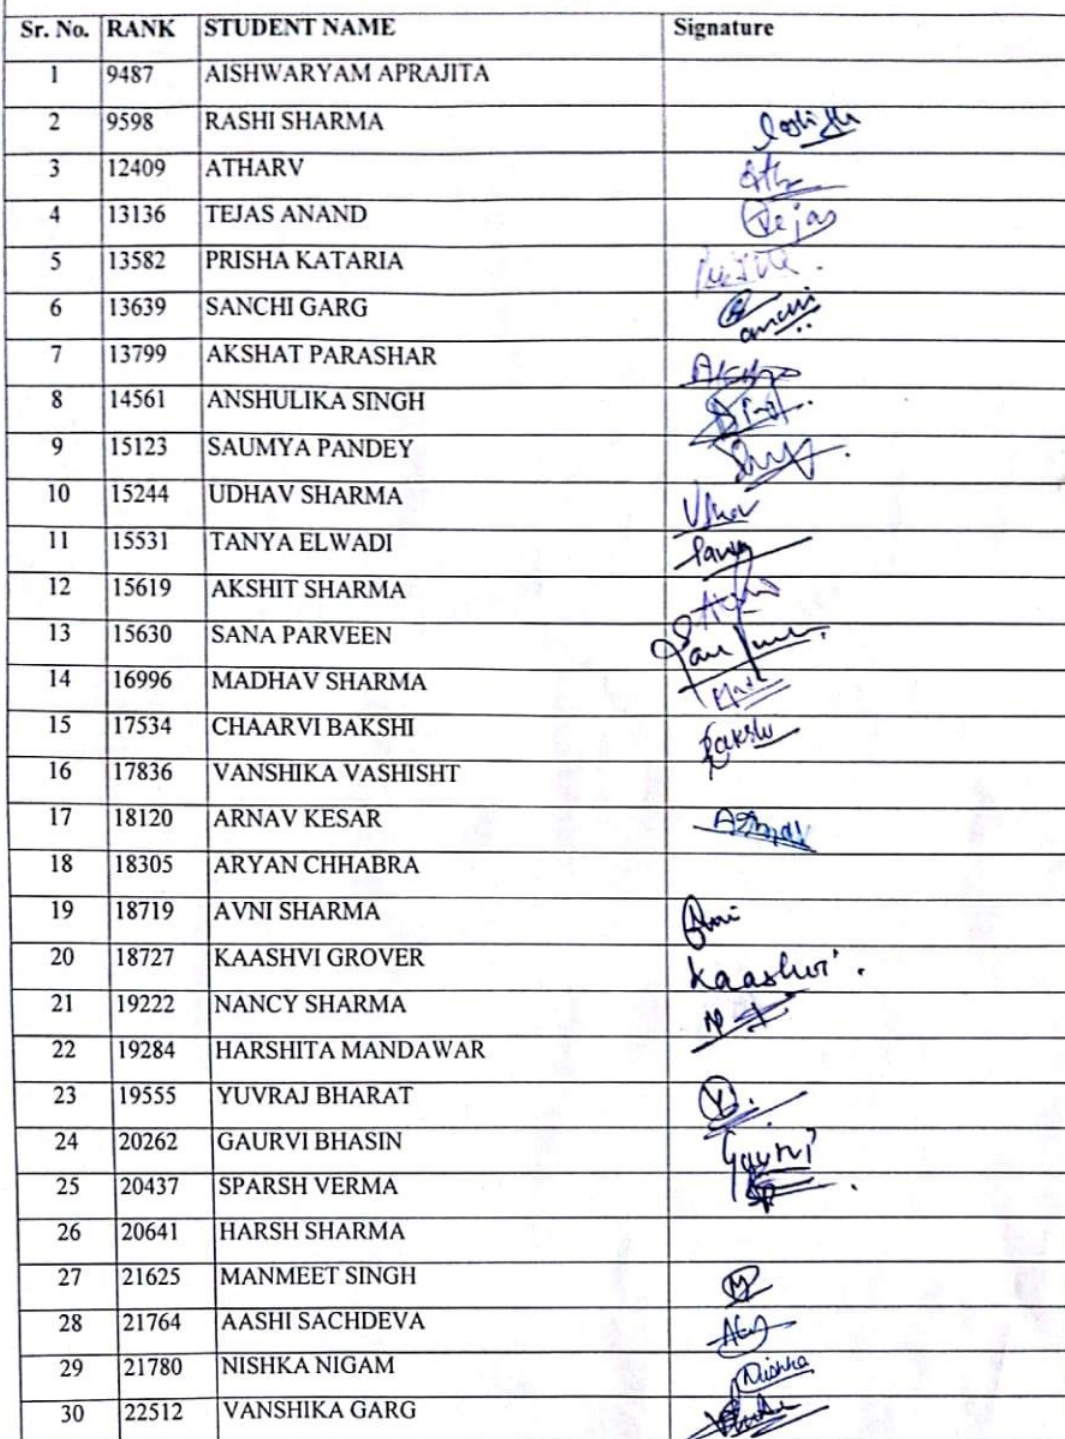 Sr. No. RANK STUDENT NAME Signature
1 9487 AISHWARYAM APRAJITA
2 9598 RASHI SHARMA
3 12409 ATHARV
4 13136 TEJAS ANAND Tejas
5 13582 PRISHA KATARIA
6 13639 SANCHI GARG
7 13799 AKSHAT PARASHAR
8 14561 ANSHULIKA SINGH
9 15123 SAUMYA PANDEY
10 15244 UDHAV SHARMA
11 15531 TANYA ELWADI
12 15619 AKSHIT SHARMA
13 15630 SANA PARVEEN
14 16996 MADHAV SHARMA
15 17534 CHAARVI BAKSHI
16 17836 VANSHIKA VASHISHT
17 18120 ARNAV KESAR
18 18305 ARYAN CHHABRA
19 18719 AVNI SHARMA
20 18727 KAASHVI GROVER Kaashvi
21 19222 NANCY SHARMA
22 19284 HARSHITA MANDAWAR
23 19555 YUVRAJ BHARAT
24 20262 GAURVI BHASIN Gaurvi
25 20437 SPARSH VERMA
26 20641 HARSH SHARMA
27 21625 MANMEET SINGH
28 21764 AASHI SACHDEVA
29 21780 NISHKA NIGAM Nishka
30 22512 VANSHIKA GARG